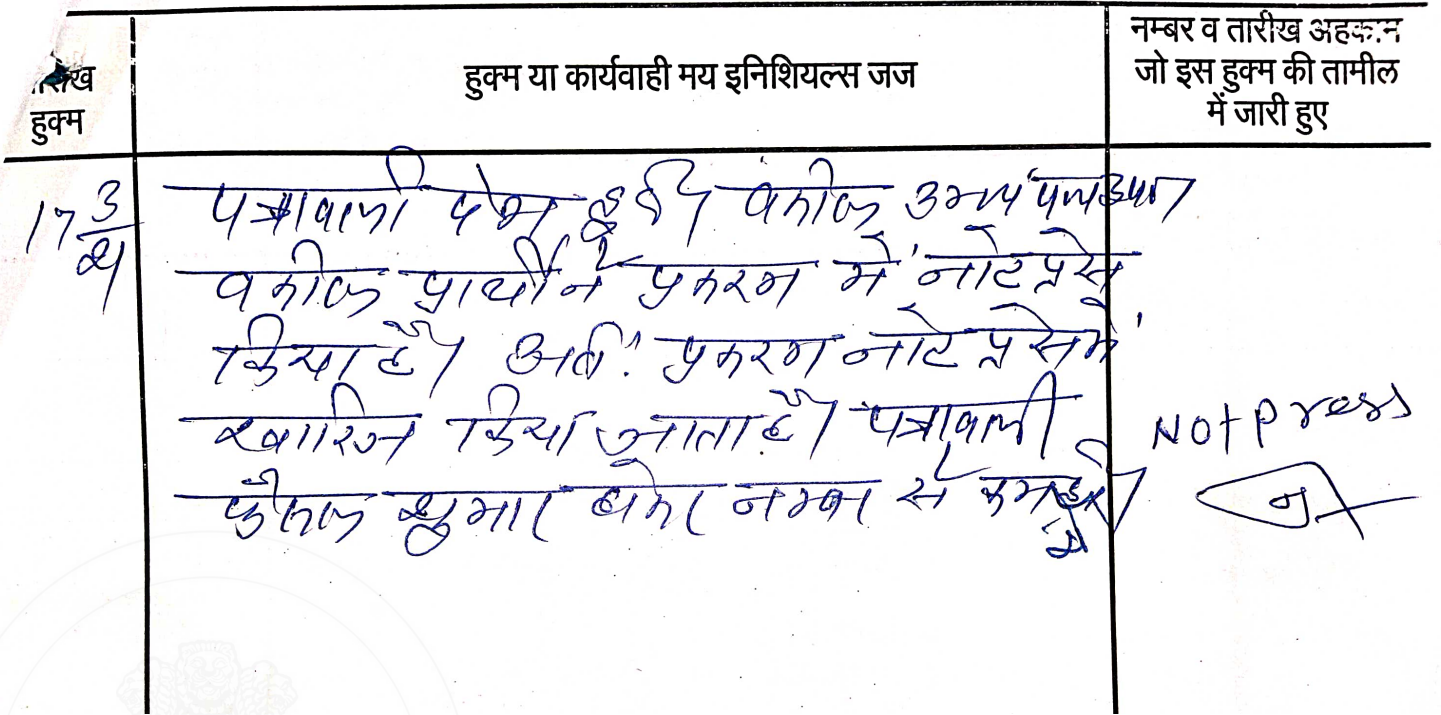 तारीख
हुक्म
हुक्म या कार्यवाही मय इनिशियल्स जज
नम्बर व तारीख अहकाम
जो इस हुक्म की तामील
में जारी हुए
17 3
पत्रावली पेश हुई। वकील उभय पक्ष
वकील प्रार्थी ने प्रकरण में नोट प्रेस
किया है। अतः प्रकरण नोट प्रेस में
खारिज किया जाता है। पत्रावली
फैसल शुमार होकर नम्बर से कम हो।
Not press